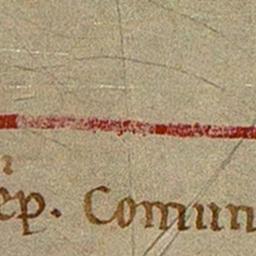 ep. Comun